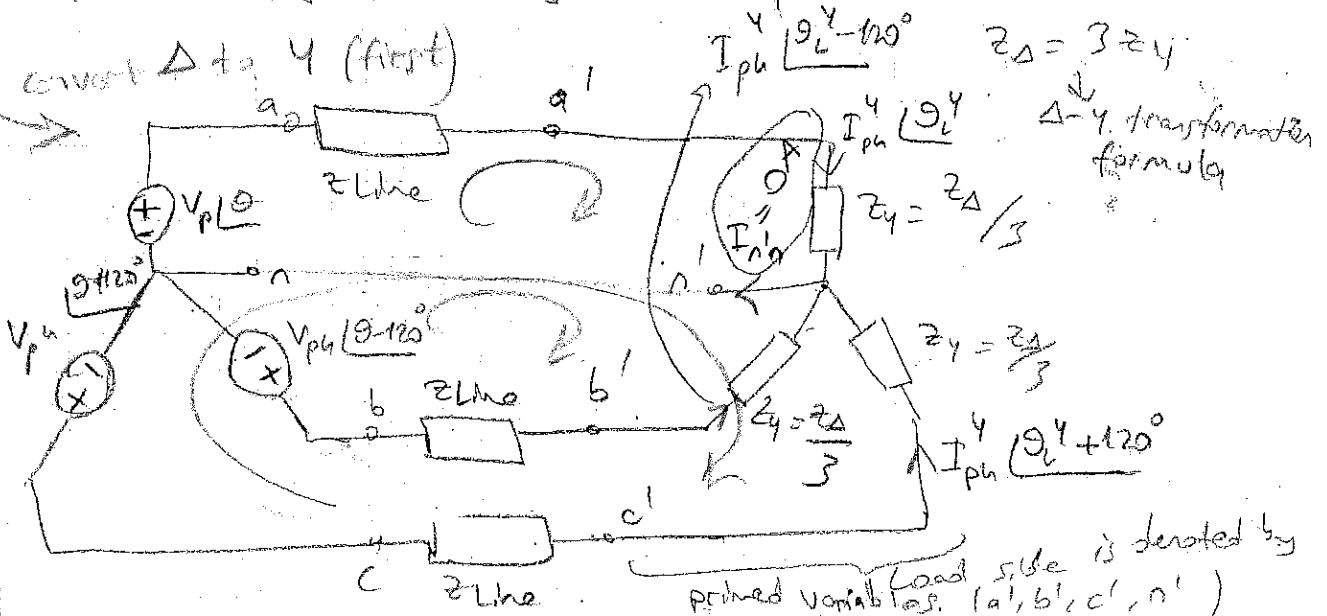 convert Δ to Y (first)
I_ph^Y ∠θ_L^Y -120°
Z_Δ = 3 Z_Y
Δ-Y transformation
formula
a
a'
I_ph^Y ∠θ_L^Y
Z Line
0
"
I_n'n
Z_Y = Z_Δ/3
+
-
V_p ∠θ
n
n'
∠θ+120°
V_ph
V_ph ∠θ-120°
-
+
-
+
b
Z Line
b'
Z_Y = Z_Δ/3
Z_Y = Z_Δ/3
I_ph^Y ∠θ_L^Y +120°
c
Z Line
c'
Load side is denoted by
primed variables. (a', b', c', n')